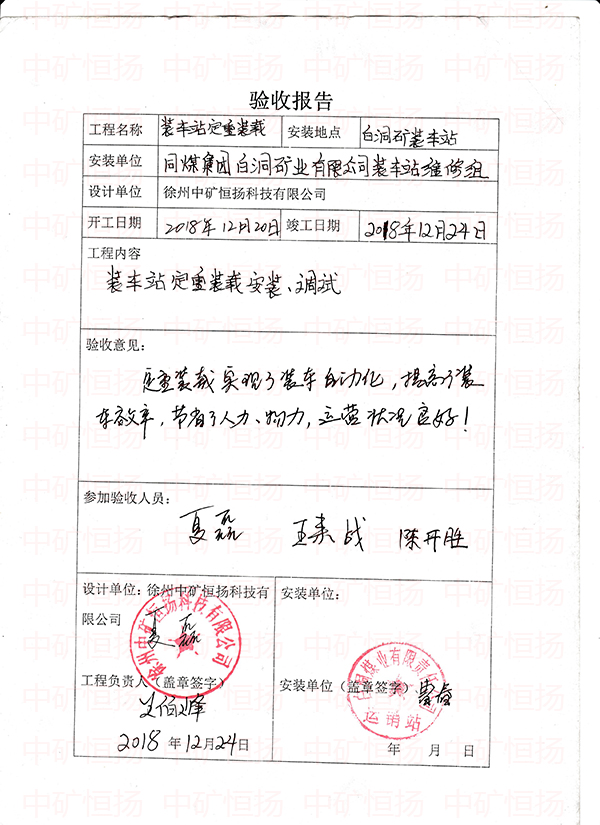 验收报告
工程名称 装车站定重装载 安装地点 白洞矿装车站
安装单位 同煤集团白洞矿业有限公司装车站维修组
设计单位 徐州中矿恒扬科技有限公司
开工日期 2018年12月20日 竣工日期 2018年12月24日
工程内容
装车站定重装载安装、调试
验收意见:
定重装载实现了装车自动化,提高了装
车效率,节省了人力、物力,运营状况良好!
参加验收人员:
夏磊 陈开胜
设计单位:徐州中矿恒扬科技有
限公司
安装单位:
夏磊
徐州中矿恒扬科技有限公司
工程负责人(盖章签字)
安装单位(盖章签字)
运销站
2018年12月24日
年 月 日
中矿恒扬